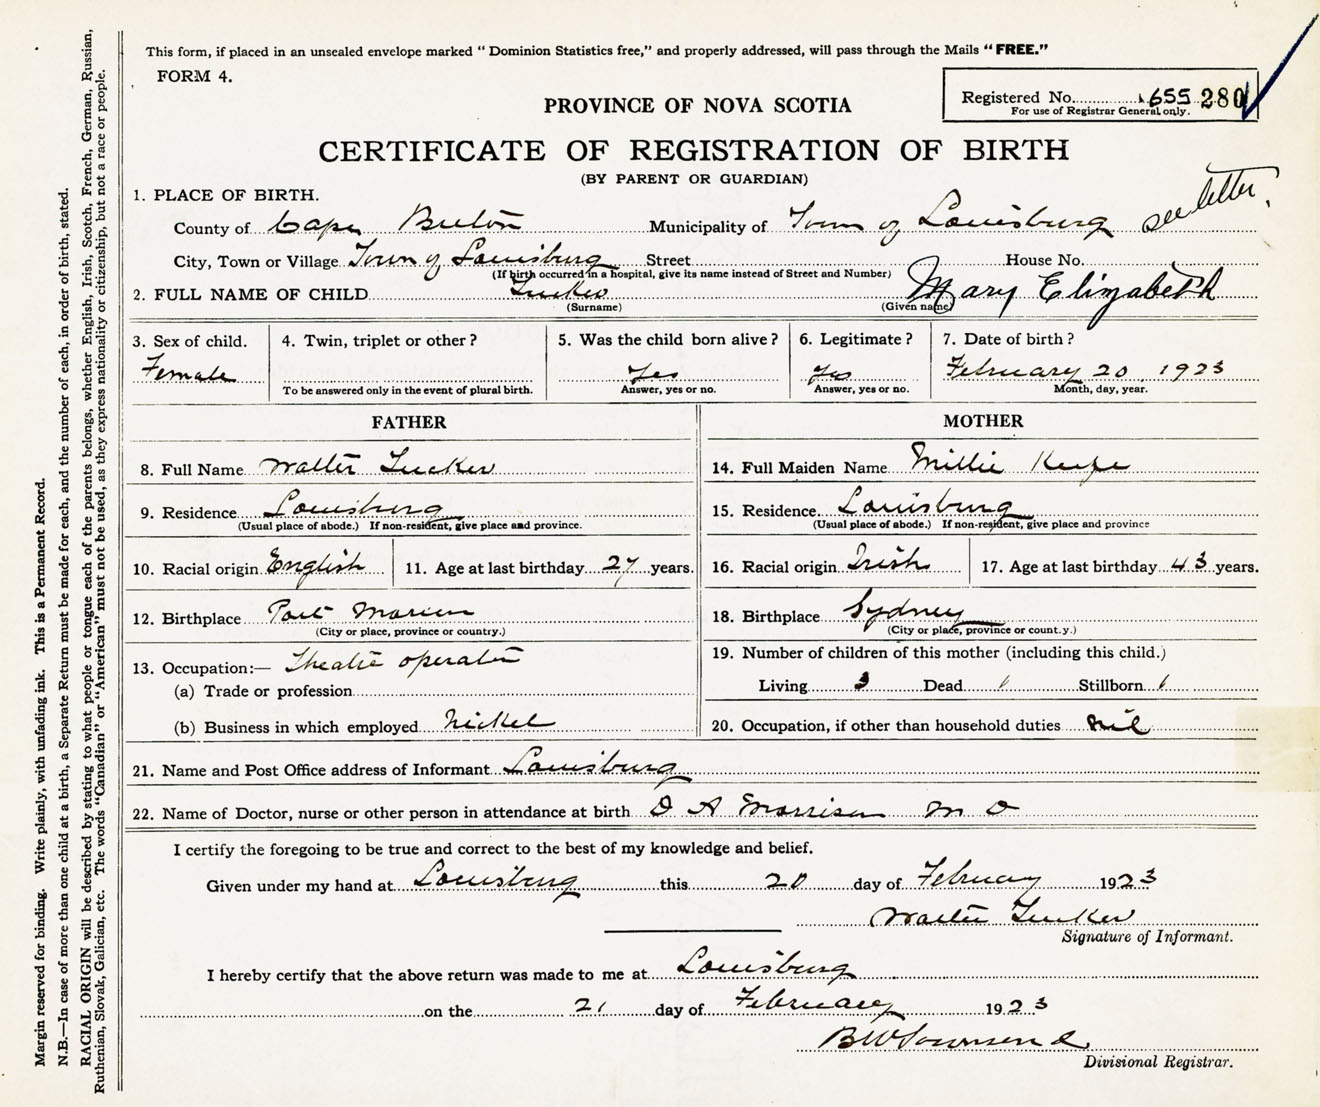 This form, if placed in an unsealed envelope marked " Dominion Statistics free," and properly addressed, will pass through the Mails " FREE."
FORM 4.
Registered No. 655 280
For use of Registrar General only.
PROVINCE OF NOVA SCOTIA
CERTIFICATE OF REGISTRATION OF BIRTH
(BY PARENT OR GUARDIAN)
see letter.
1. PLACE OF BIRTH.
County of Cape Breton Municipality of Town of Louisburg
City, Town or Village Town of Louisburg Street House No.
(If birth occurred in a hospital, give its name instead of Street and Number)
2. FULL NAME OF CHILD Tucker Mary Elizabeth
(Surname) (Given name)
3. Sex of child. 4. Twin, triplet or other ? 5. Was the child born alive ? 6. Legitimate ? 7. Date of birth ?
Female Yes Yes February 20 1923
To be answered only in the event of plural birth. Answer, yes or no. Answer, yes or no. Month, day, year.
FATHER
8. Full Name Walter Tucker
9. Residence Louisburg
(Usual place of abode.) If non-resident, give place and province.
10. Racial origin English 11. Age at last birthday 27 years.
12. Birthplace Port Morien
(City or place, province or country.)
13. Occupation:— Theatre operator
(a) Trade or profession
(b) Business in which employed Nickel
MOTHER
14. Full Maiden Name Millie Keefe
15. Residence Louisburg
(Usual place of abode.) If non-resident, give place and province
16. Racial origin Irish 17. Age at last birthday 43 years.
18. Birthplace Sydney
(City or place, province or count.y.)
19. Number of children of this mother (including this child.)
Living 3 Dead 1 Stillborn 1
20. Occupation, if other than household duties nil
21. Name and Post Office address of Informant Louisburg
22. Name of Doctor, nurse or other person in attendance at birth D A Morrison M D
I certify the foregoing to be true and correct to the best of my knowledge and belief.
Given under my hand at Louisburg this 20 day of February 1923
Walter Tucker
Signature of Informant.
I hereby certify that the above return was made to me at Louisburg
on the 21 day of February 1923
BW Townsend
Divisional Registrar.
Margin reserved for binding. Write plainly, with unfading ink. This is a Permanent Record.
N.B.—In case of more than one child at a birth, a Separate Return must be made for each, and the number of each, in order of birth, stated.
RACIAL ORIGIN will be described by stating to what people or tongue each of the parents belongs, whether English, Irish, Scotch, French, German, Russian,
Ruthenian, Slovak, Galician, etc. The words "Canadian" or "American" must not be used, as they express nationality or citizenship, but not a race or people.